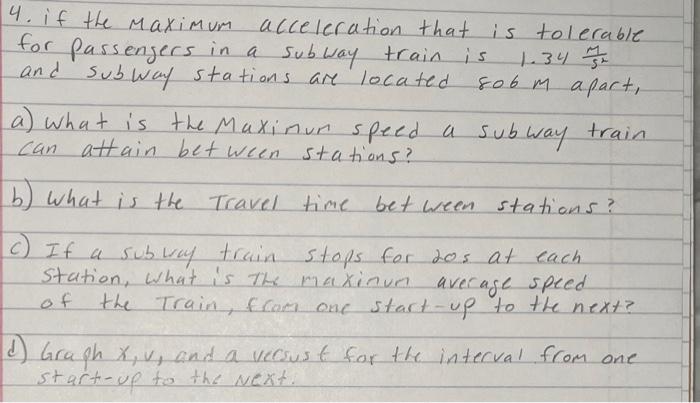 4. if the Maximum acceleration that is tolerable
for passengers in a subway train is 1.34 M/s²
and subway stations are located 806 M apart,
a) what is the Maximum speed a subway train
can attain between stations?
b) what is the Travel time between stations?
c) If a subway train stops for 20s at each
station, what is The maximum average speed
of the Train, from one start-up to the next?
d) Graph x, v, and a versus t for the interval from one
start-up to the Next.